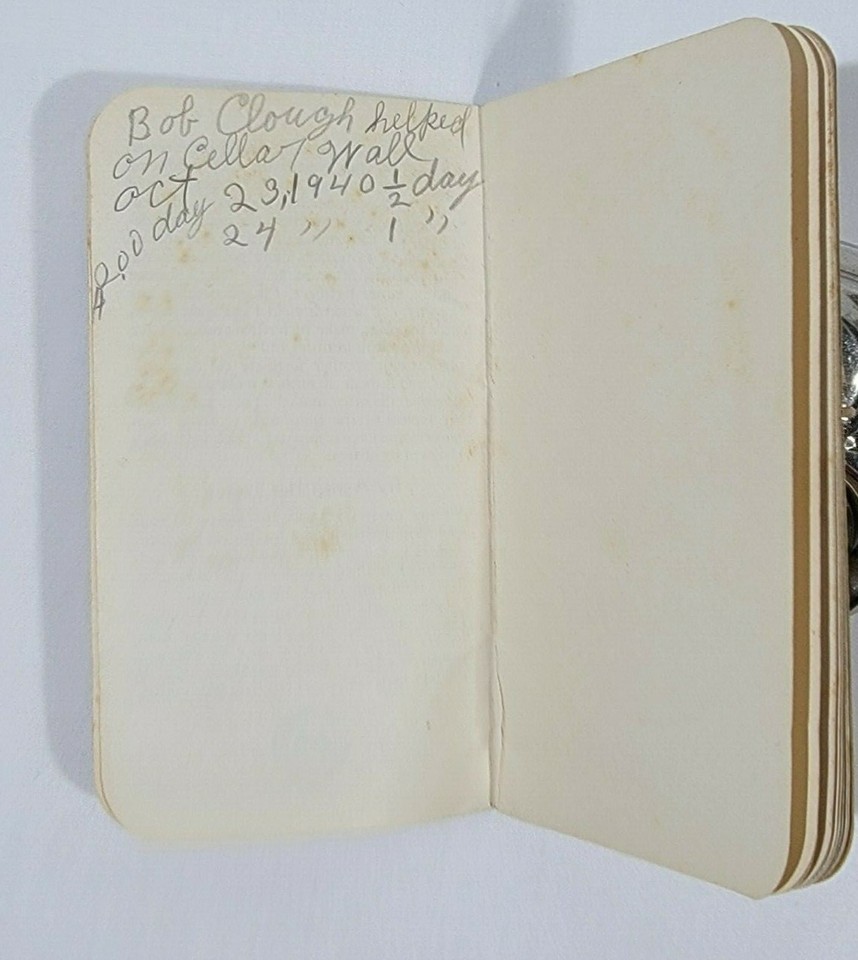 Bob Clough helked
on Cellar Wall
oct 23, 1940 ½ day
24 " 1 "
2.00 day